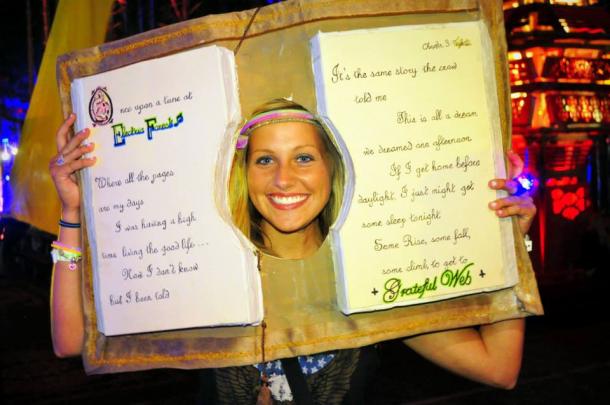 Once upon a time at
Electric Forest
Where all the pages
are my days
I was having a high
time living the good life ....
Now I don't know
but I been told
3
It's the same story the crow
told me
This is all a dream
we dreamed one afternoon
If I get home before
daylight, I just might get
some sleep tonight
Some Rise, some fall,
some climb, to get to
Grateful Web